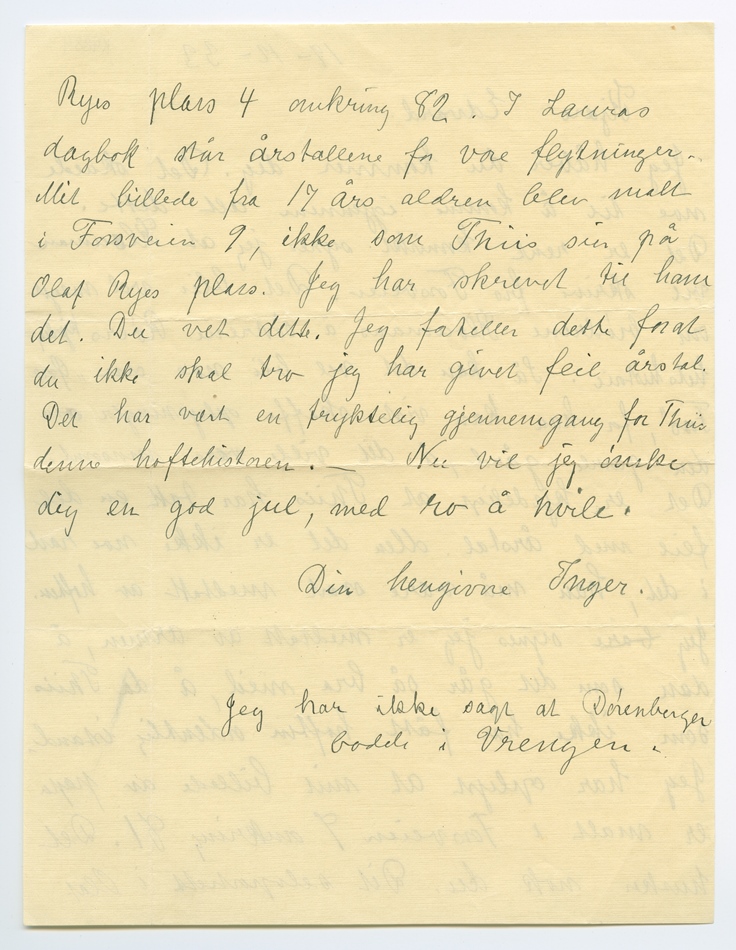 Ryes plass 4 omkring 82. I Lauras
dagbok står årstallene for vore flytninger.
Mit billede fra 17 års aldren blev malt
i Fossveien 9, ikke som Thiis sier på
Olaf Ryes plass. Jeg har skrevet til ham
det. Du vet dette. Jeg forteller dette forat
du ikke skal tro jeg har givet feil årstal.
Det har vært en tryktelig gjennemgang for Thiis
denne hoftehistorien. — Nu vil jeg ønske
dig en god jul, med ro å hvile.
Din hengivne Inger.
Jeg har ikke sagt at Dørenberger
bodde i Vrengen.